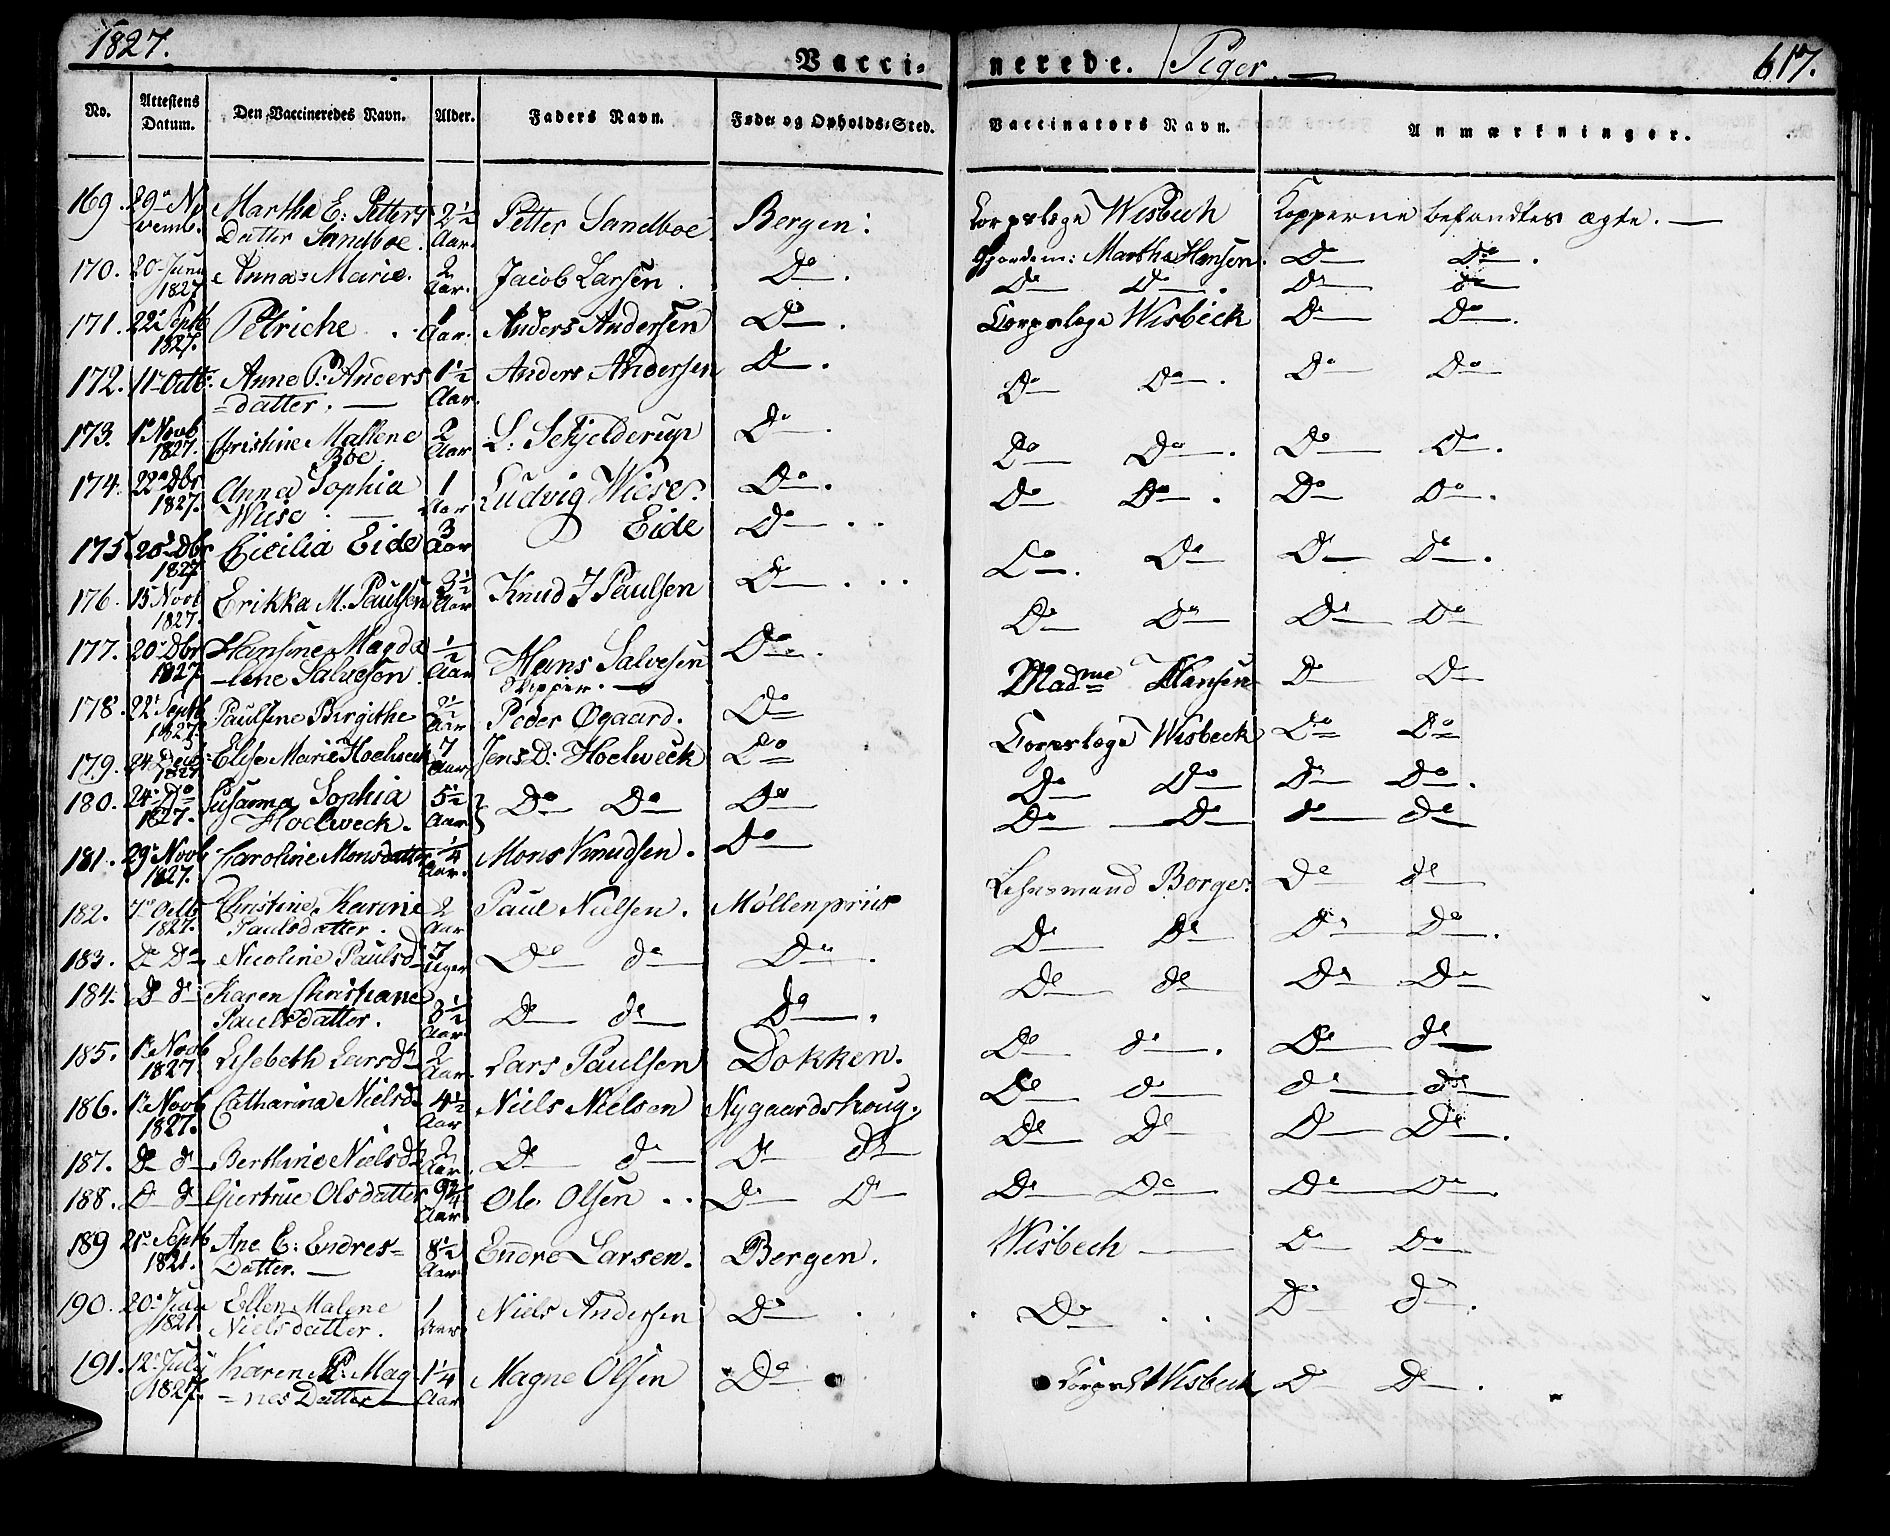 1827.
Vacci- nerede. Piger. 617.
No. Attestens Datum. Den Vaccineredes Navn. Alder. Faders Navn. Føde- og Opholds-Sted. Vaccinators Navn. Anmærkninger.
169. 29de No Martha E: Petters 2½ Petter Sandboe. Bergen: Corpslæge Wisbech Kopperne befandtes ægte. —
vemb. Datter Sandboe. Aar.
170. 20 Juni Anna Marie. 2 Jacob Larsen. Do. Martha Hansen. Do Do.
1827 Aar. Do Do. Do do
171. 22 Septb Petriche 1 Anders Andersen Do. Corpslæge Wisbeck Do Do.
1827. Aar.
172. 11te Octb. Anne P: Anders 1½ Anders Andersen Do. Do Do. Do Do
=datter. — Aar.
173. 1 Novb Christine Mallene 2 L: Schjelderup Do. Do Do. Do Do.
1827. Boe. Aar
174. 22de Dbr Anna Sophia 1 Ludvig Wiese. Do. Do Do. Do Do.
1827. Wiese. — Aar
175. 20 Dbr Cicilia Eide 3 Eide Do.. Do. Do Do Do.
1827 Aar
176. 15 Novb Erikka M. Paulsen 3½ Knud J Paulsen Do... Do Do Do Do
1827. Aar
177. 20 Dbr Hansine Magda ½ Hans Salvesen Do. Madme Hansen Do Do
1827 -lene Salveson Aar Skipper. —
178. 22 Septb Paulsine Birgithe ½ Peder Øgaard. Do Corpslæge Wisbeck Do Do
1827. Aar
179. 24 Elise Marie Hoelweck 7 Jens D: Hoelweck Do Do Do Do Do.
1827 Aar
180. 24 Do Susanna Sophia 5½ Do Do Do Do Do do do
1827. Hoelweck. Aar
181. 29 Novb Caroline Monsdatter ¼ Mons Knudsen. Do Lehnsmand Borge. Do do
1827. Aar.
182. 7de Octb Christine Karine 2 Paul Nielsen. Møllenpriis Do Do Do Do.
1827. Paulsdatter. Aar
183. Do Do Nicoline Paulsd 7 Do do Do. Do do Do Do
Uger
184. Do do Karen Christiane 8½ Do do Do. Do do. Do do
Paulsdatter. Aar
185. 1 Novb Lisebeth Larsd 2 Lars Paulsen Dokken. Do do do do
1827 Aar.
186. 1 Novb Catharina Nielsd. 4½ Niels Nielsen Nygaardshoug. Do Do Do Do.
1827. Aar
187. Do do Berthine Nielsd 2 Do do Do do
Aar.
188. Do do Giertrue Olsdatter 9¾ Ole Olsen.. Do Do Do Do Do Do.
Aar
189 21 Septb Ane C: Endres= 8½ Endre Larsen. Bergen. Wisbech — Do Do
1821. Datter. — Aar
190. 20 Juni Ellen Malene 1 Niels Andersen Do. Do.. Do do.
1821 Nielsdatter. Aar
191. 12 July Karen P: Mag 1¼ Magne Olsen Do Corps L Wisbeck Do Do.
1827. =nes Datter Aar